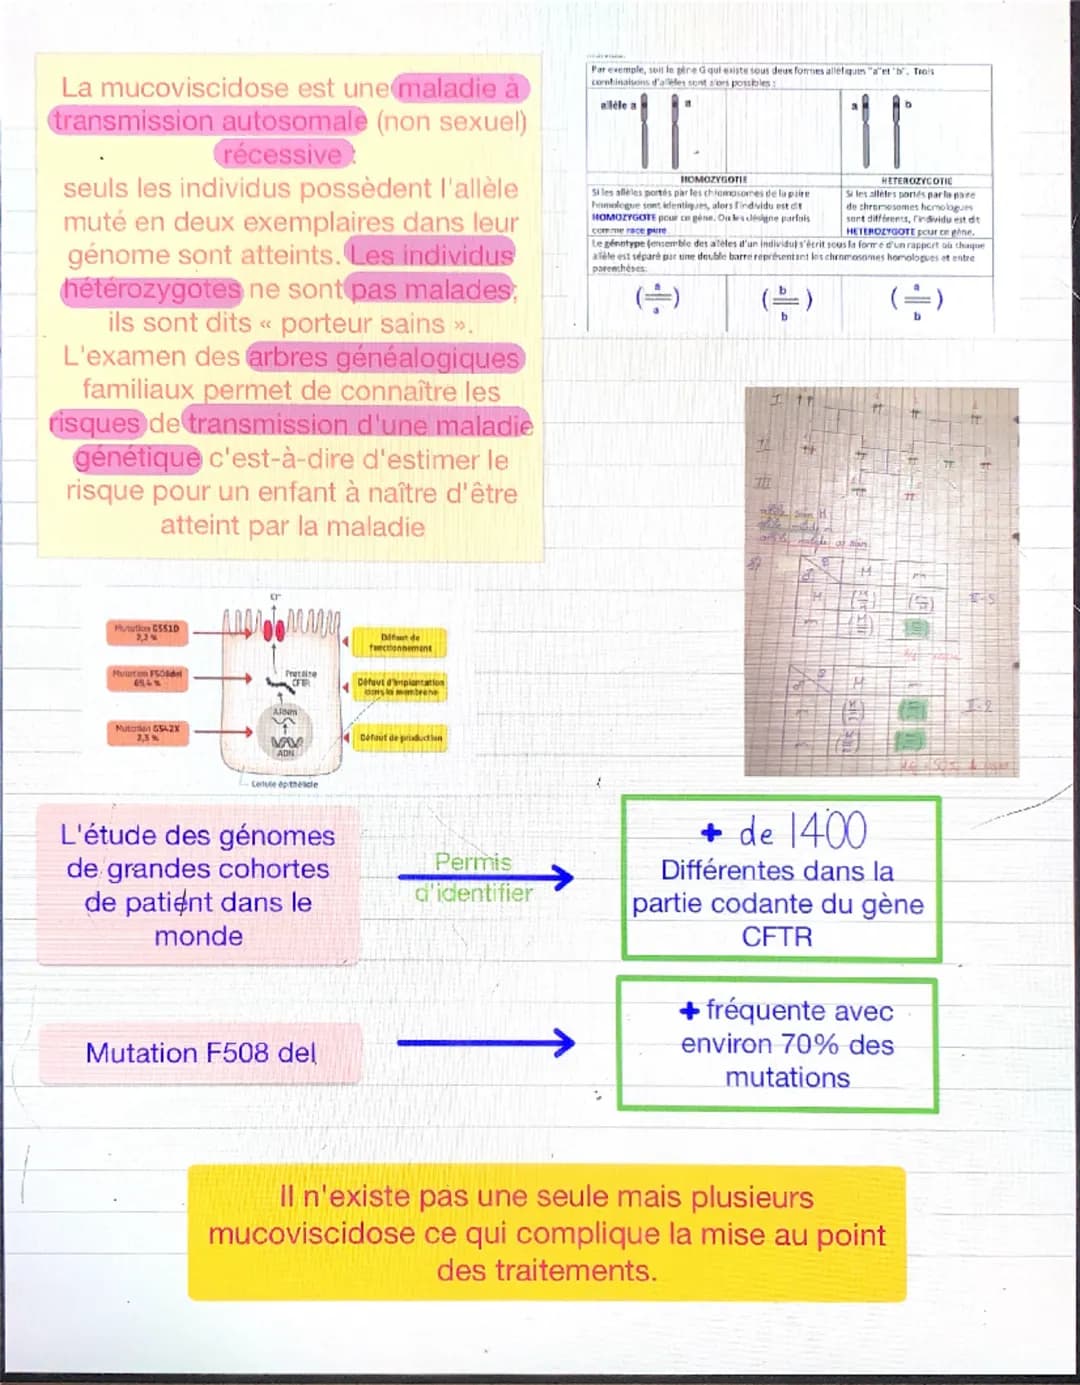 La mucoviscidose est une maladie à
transmission autosomale (non sexuel)
récessive :
seuls les individus possèdent l'allèle
muté en deux exemplaires dans leur
génome sont atteints. Les individus
hétérozygotes ne sont pas malades,
ils sont dits « porteur sains ».
L'examen des arbres généalogiques
familiaux permet de connaître les
risques de transmission d'une maladie
génétique c'est-à-dire d'estimer le
risque pour un enfant à naître d'être
atteint par la maladie
Par exemple, soit le gène G qui existe sous deux formes alléliques "a"et "b". Trois
combinaisons d'allèles sont alors possibles :
allèle a
a
a
b
HOMOZYGOTIE
Si les allèles portés par les chromosomes de la paire
homologue sont identiques, alors l'individu est dit
HOMOZYGOTE pour ce gène. On les désigne parfois
comme race pure
HETEROZYGOTIE
Si les allèles portés par la paire
de chromosomes homologues
sont différents, l'individu est dit
HETEROZYGOTE pour ce gène.
Le génotype (ensemble des allèles d'un individu) s'écrit sous la forme d'un rapport où chaque
allèle est séparé par une double barre représentant les chromosomes homologues et entre
parenthèses:
a
a
b
b
a
b
I
II
III
M
m
M
m
II-2
Cl-
Mutation G551D
2,2 %
Mutation F508del
69,4 %
Mutation G542X
2,3 %
Protéine
CFTR
ARNm
ADN
Cellule épithéliale
Défaut de
fonctionnement
Défaut d'implantation
dans la membrane
Défaut de production
L'étude des génomes
de grandes cohortes
de patient dans le
monde
Permis
d'identifier
+ de 1400
Différentes dans la
partie codante du gène
CFTR
Mutation F508 del
+ fréquente avec
environ 70% des
mutations
Il n'existe pas une seule mais plusieurs
mucoviscidose ce qui complique la mise au point
des traitements.